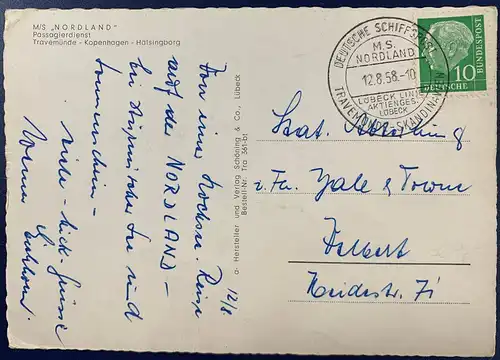 M/S „NORDLAND"
Passagierdienst
Travemünde - Kopenhagen - Hälsingborg
12/8
Von einer Reise
auf der NORDLAND –
bei See und
Sonnenschein –
viele Grüsse
a- Hersteller und Verlag Schöning & Co., Lübeck
Bestell-Nr. Tra 561-bt
DEUTSCHE SCHIFFSPOST
M.S.
NORDLAND
12.8.58.-10
LÜBECK LINIE
AKTIENGES.
LÜBECK
TRAVEMÜNDE-SKANDINAVIEN
DEUTSCHE BUNDESPOST
10
z. Fa. Yale & Towne
Velbert
Heidestr. 71